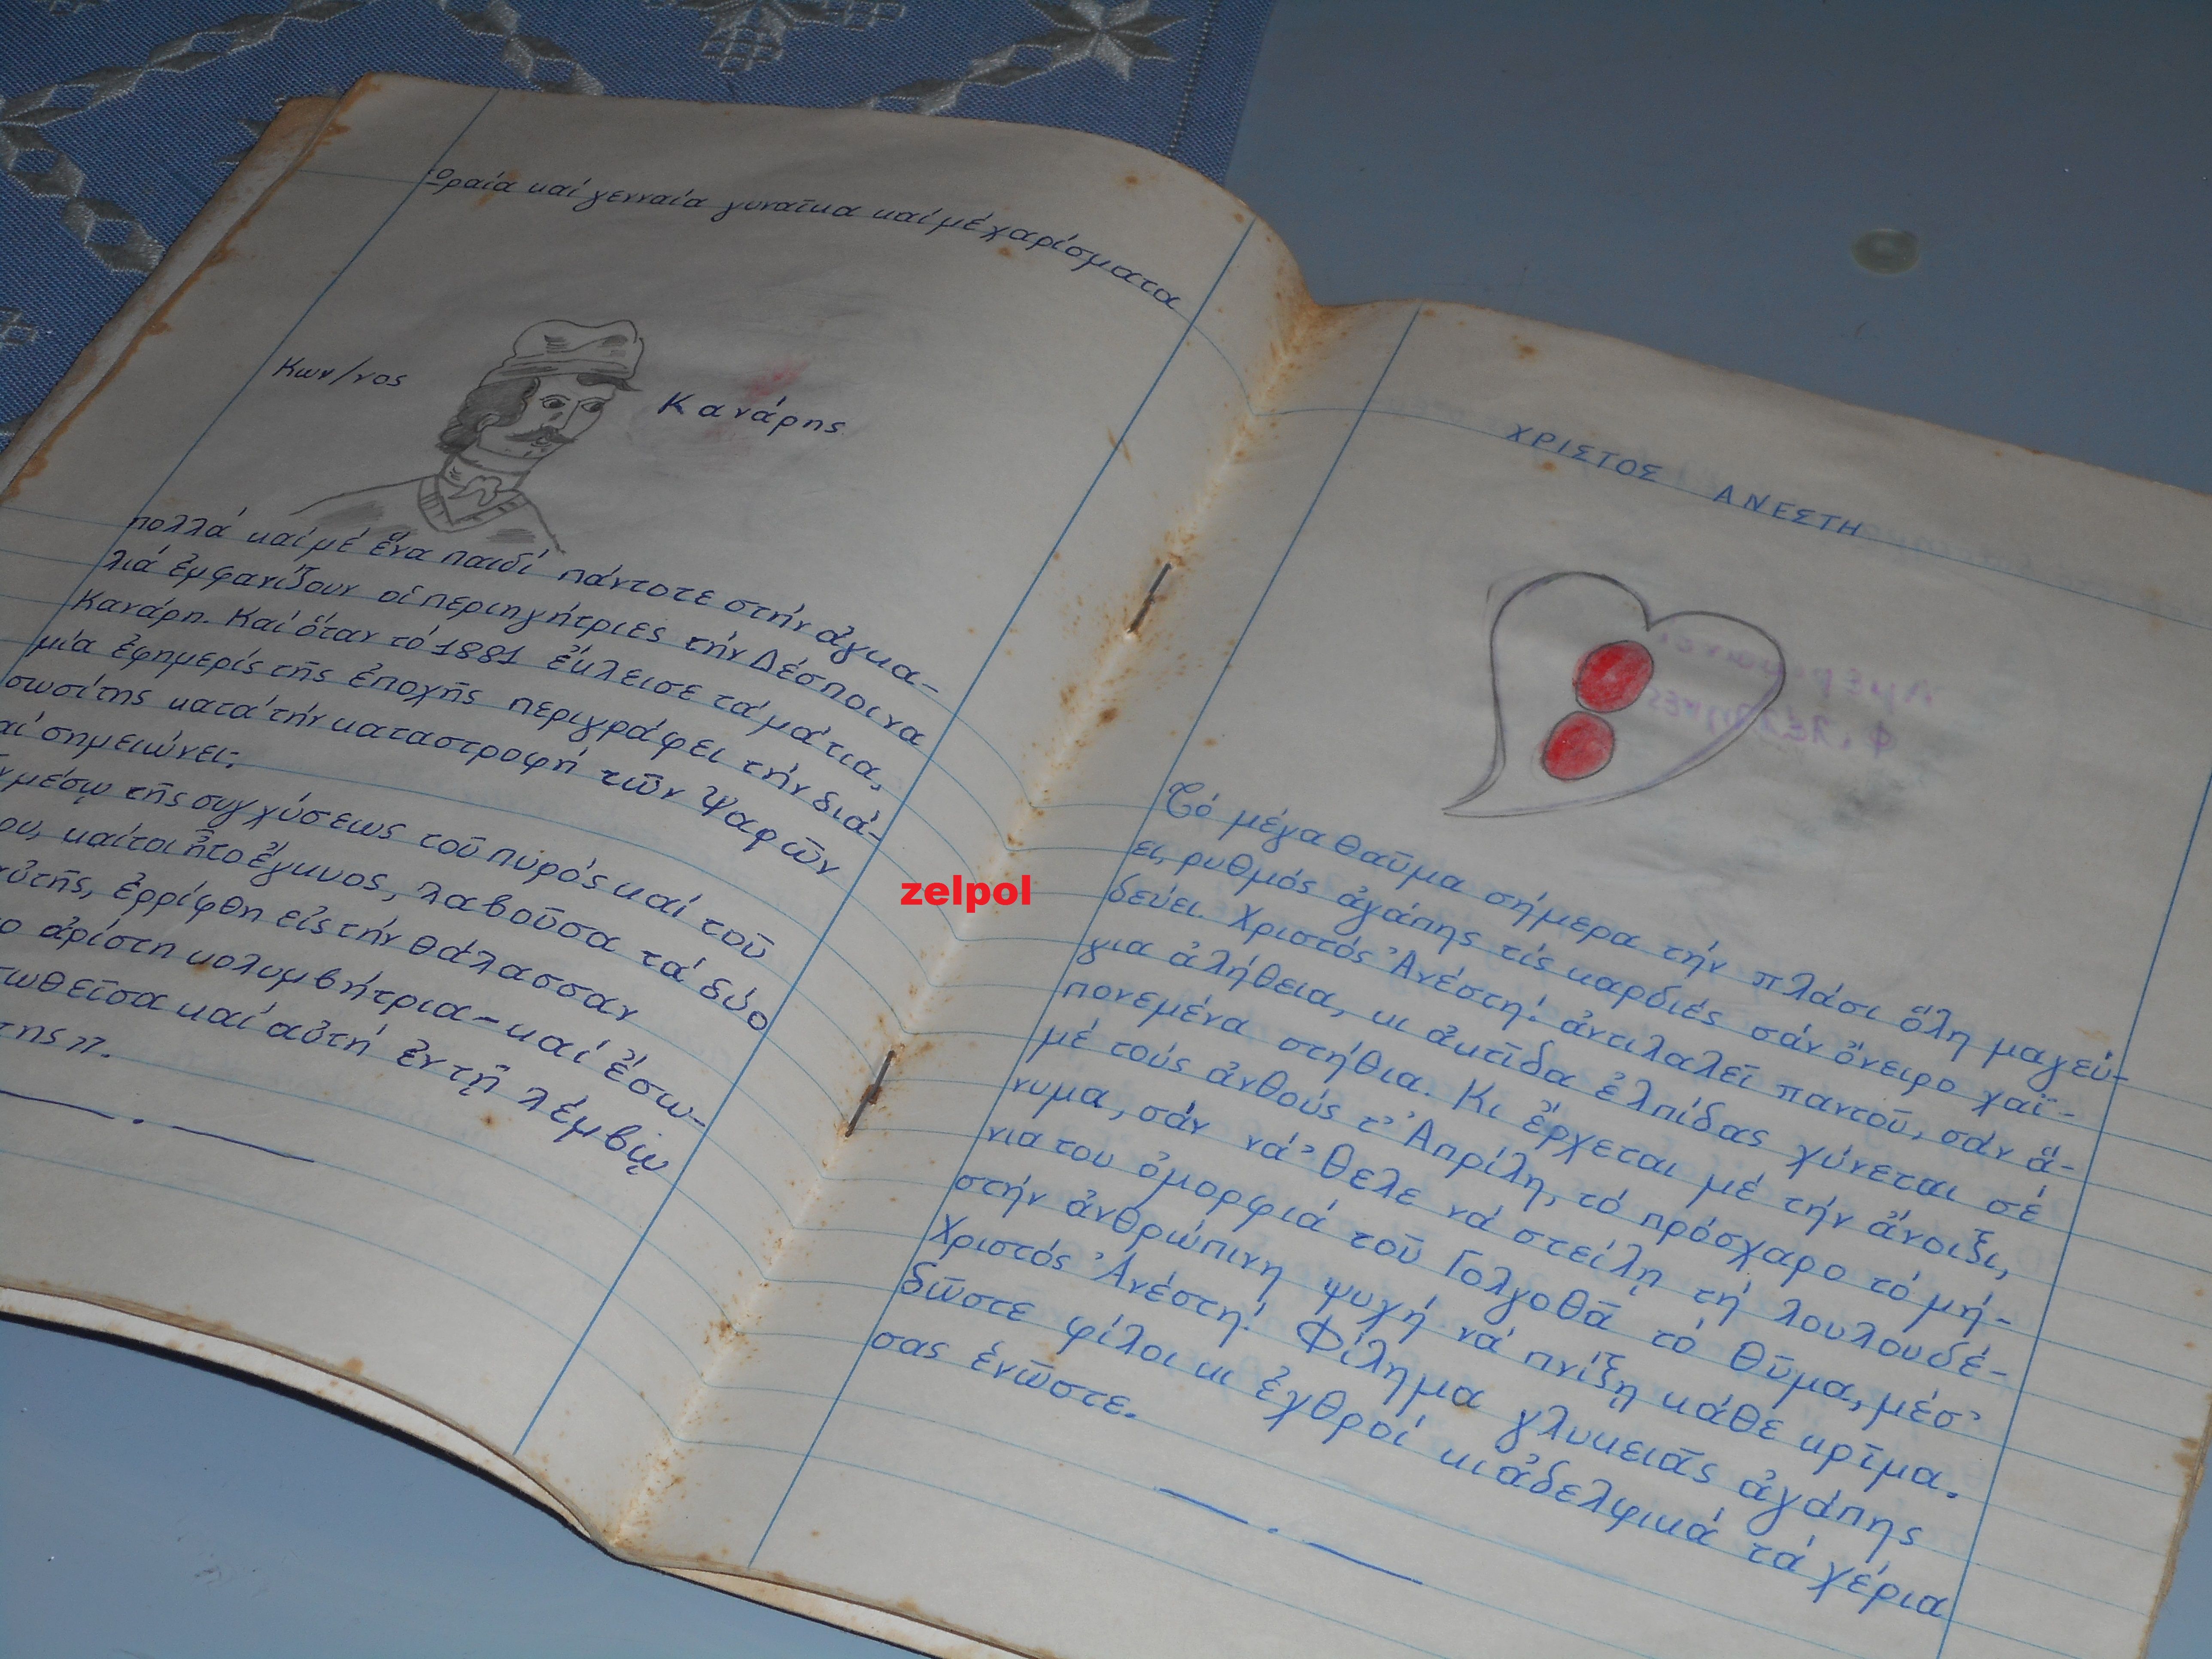 Ὡραία καί γενναία γυναῖκα καί μέ χαρίσματα
Κων/νος Κανάρης
πολλά καί μέ ἕνα παιδί πάντοτε στήν ἀγκα-
λιά ἐμφανίζουν οἱ περιηγήτριες τήν Δέσποινα
Κανάρη. Καί ὅταν τό 1881 ἔκλεισε τά μάτια,
μία ἐφημερίς τῆς ἐποχῆς περιγράφει τήν διά-
σωσίτης κατά τήν καταστροφή τῶν Ψαρῶν
αί σημειώνει:
μέσῳ τῆς συγχύσεως τοῦ πυρός καί τοῦ
ου, καίτοι ἦτο ἔγκυος, λαβοῦσα τά δύο
αὐτῆς, ἐρρίφθη εἰς τήν θάλασσαν
ο ἀρίστη κολυμβήτρια - καί ἐσω-
τωθεῖσα καί αὐτή ἐν τῇ λέμβῳ
της π.
ΧΡΙΣΤΟΣ ΑΝΕΣΤΗ
Τό μέγα θαῦμα σήμερα τήν πλάσι ὅλη μαγεύ-
ει, ρυθμός ἀγάπης τίς καρδιές σάν ὄνειρο χαϊ-
δεύει. Χριστός Ἀνέστη! ἀντιλαλεῖ παντοῦ, σάν ἅ-
για ἀλήθεια, κι ἀκτῖδα ἐλπίδας χύνεται σέ
πονεμένα στήθια. Κι ἔρχεται μέ τήν ἄνοιξι,
μέ τούς ἀνθούς τ' Ἀπρίλη, τό πρόσχαρο τό μή-
νυμα, σάν νά 'θελε νά στείλη τή λουλουδέ-
νια του ὀμορφιά τοῦ Γολγοθᾶ τό Θῦμα, μέσ'
στήν ἀνθρώπινη ψυχή νά πνίξῃ κάθε κρῖμα.
Χριστός Ἀνέστη! Φίλημα γλυκειᾶς ἀγάπης
δῶστε φίλοι κι ἐχθροί κι ἀδελφικά τά χέρια
σας ἑνῶστε.
zelpol